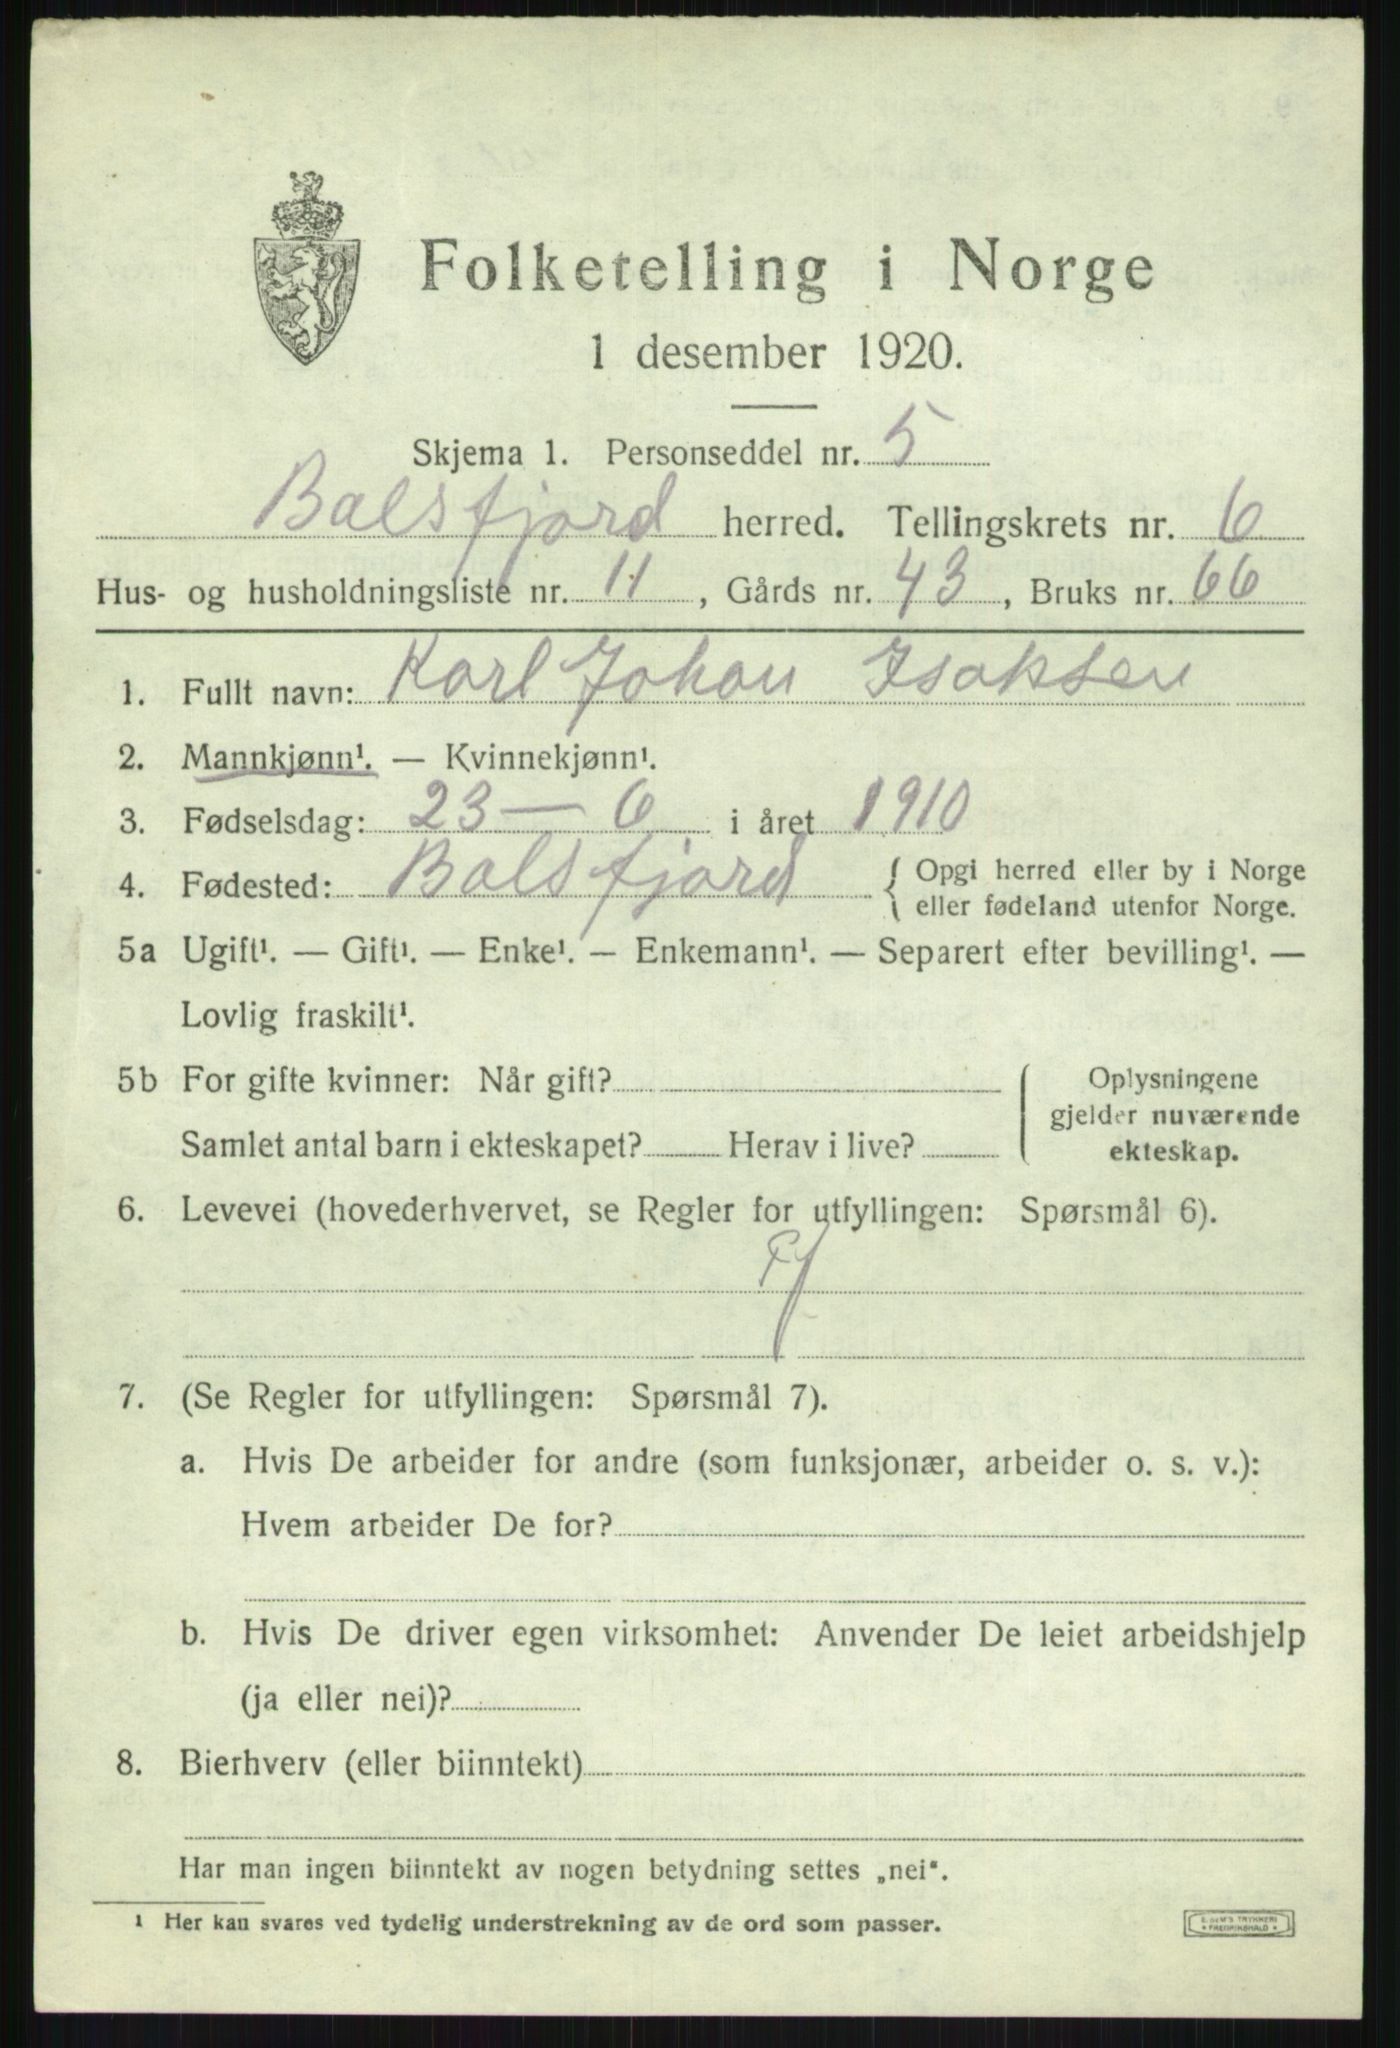 Folketelling i Norge
1 desember 1920.
Skjema 1. Personseddel nr. 5
Balsfjord herred. Tellingskrets nr. 6
Hus- og husholdningsliste nr. 11, Gårds nr. 43, Bruks nr. 66
1. Fullt navn: Karl Johan Isaksen
2. Mannkjønn¹. — Kvinnekjønn¹.
3. Fødselsdag: 23 — 6 i året 1910
4. Fødested: Balsfjord { Opgi herred eller by i Norge
eller fødeland utenfor Norge.
5a Ugift¹. — Gift¹. — Enke¹. — Enkemann¹. — Separert efter bevilling¹. —
Lovlig fraskilt¹.
5b For gifte kvinner: Når gift?
Samlet antal barn i ekteskapet? Herav i live?
Oplysningene
gjelder nuværende
ekteskap.
6. Levevei (hovederhvervet, se Regler for utfyllingen: Spørsmål 6).
7. (Se Regler for utfyllingen: Spørsmål 7).
a. Hvis De arbeider for andre (som funksjonær, arbeider o. s. v.):
Hvem arbeider De for?
b. Hvis De driver egen virksomhet: Anvender De leiet arbeidshjelp
(ja eller nei)?
8. Bierhverv (eller biinntekt)
Har man ingen biinntekt av nogen betydning settes „nei“.
¹ Her kan svares ved tydelig understrekning av de ord som passer.